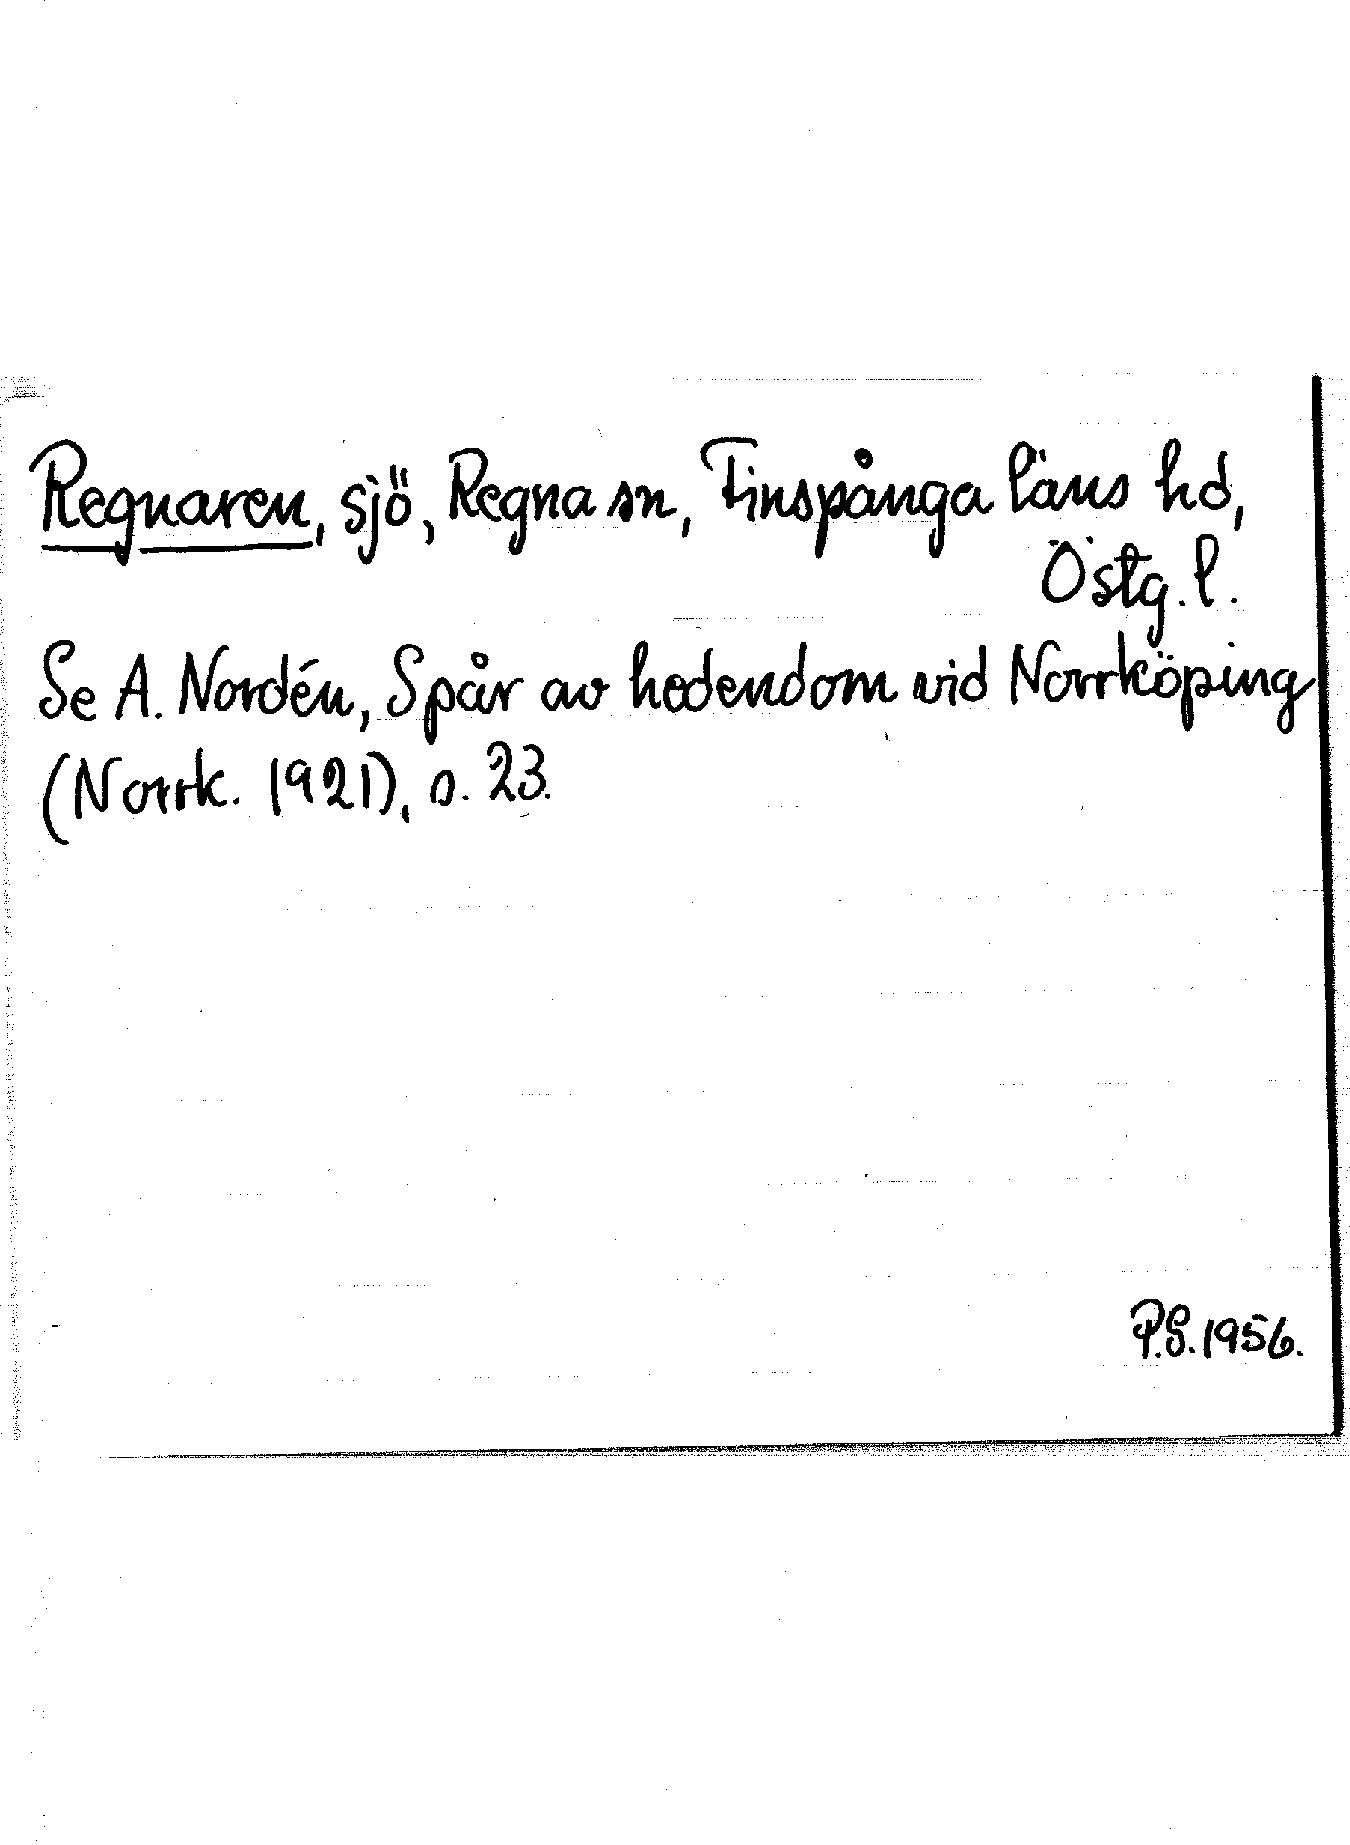 Regnaren, sjö, Regna sn, Finspånga läns hd,
Östg. l.
Se A. Nordén, Spår av hedendom vid Norrköping
(Norrk. 1921), s. 23.
P.S. 1956.